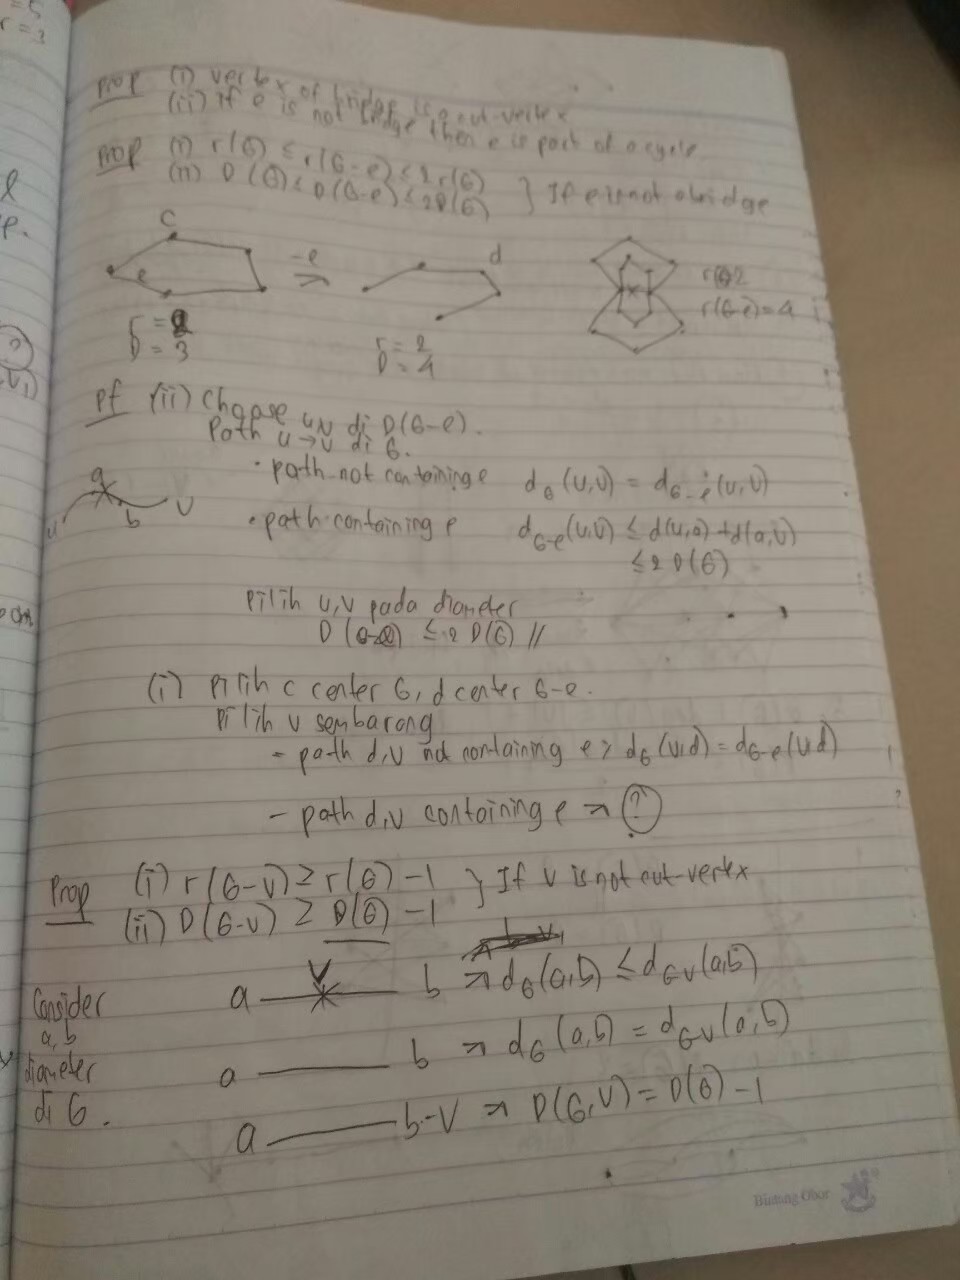 = 5
r = 3
Prop (i) vertex of bridge is a cut-vertex
(ii) If e is not bridge then e is part of a cycle
Prop (i) r(G) ≤ r(G-e) ≤ 2 r(G)
(ii) D(G) ≤ D(G-e) ≤ 2D(G) } If e is not a bridge
c
e
-e
⇒
d
r(G)=2
r(G-e)=4
r =
D = 3
r = 2
D = 4
Pf (ii) Choose u,v di D(G-e).
Path u→v di G.
· path not containing e d_G(u,v) = d_G-e(u,v)
a
u b v
· path containing e d_G-e(u,v) ≤ d(u,a)+d(a,v)
≤ 2 D(G)
Pilih u,v pada diameter
D(G-e) ≤ 2 D(G) //
(i) Pilih c center G, d center G-e.
Pilih v sembarang
- path d,v not containing e → d_G(v,d) = d_G-e(v,d)
- path d,v containing e → ?
Prop (i) r(G-v) ≥ r(G) -1 } If v is not cut-vertex
(ii) D(G-v) ≥ D(G) -1
Consider
a, b
diameter
di G.
v
a b → d_G(a,b) ≤ d_Gv(a,b)
a b → d_G(a,b) = d_Gv(a,b)
a b-v → D(G,v) = D(G) -1
Bintang Obor